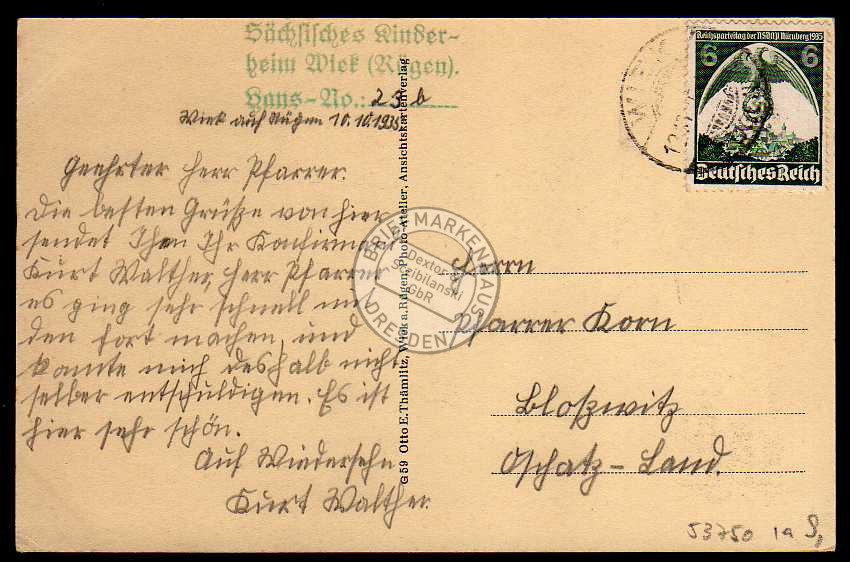 Sächsisches Kinder-
heim Wiek (Rügen).
Haus-No.: 23 b
Wiek auf Rügen 10.10.1935
Geehrter Herr Pfarrer.
Die besten Grüße von hier
sendet Ihnen Ihr Konfirmand
Kurt Walther, Herr Pfarrer
es ging sehr schnell mit
den fort machen, und
konnte mich deshalb nicht
selber entschuldigen. Es ist
hier sehr schön.
Auf Wiedersehn
Kurt Walther.
G 59 Otto E. Thämlitz, Wiek a. Rügen, Photo-Atelier, Ansichtskartenverlag
Reichsparteitag der NSDAP Nürnberg 1935
6 6
Deutsches Reich
BRIEFMARKENHAUS
Dextor
Scibilanski
GbR
DRESDEN
Herrn
Pfarrer Korn
Bloßwitz
Oschatz-Land.
53750 1a